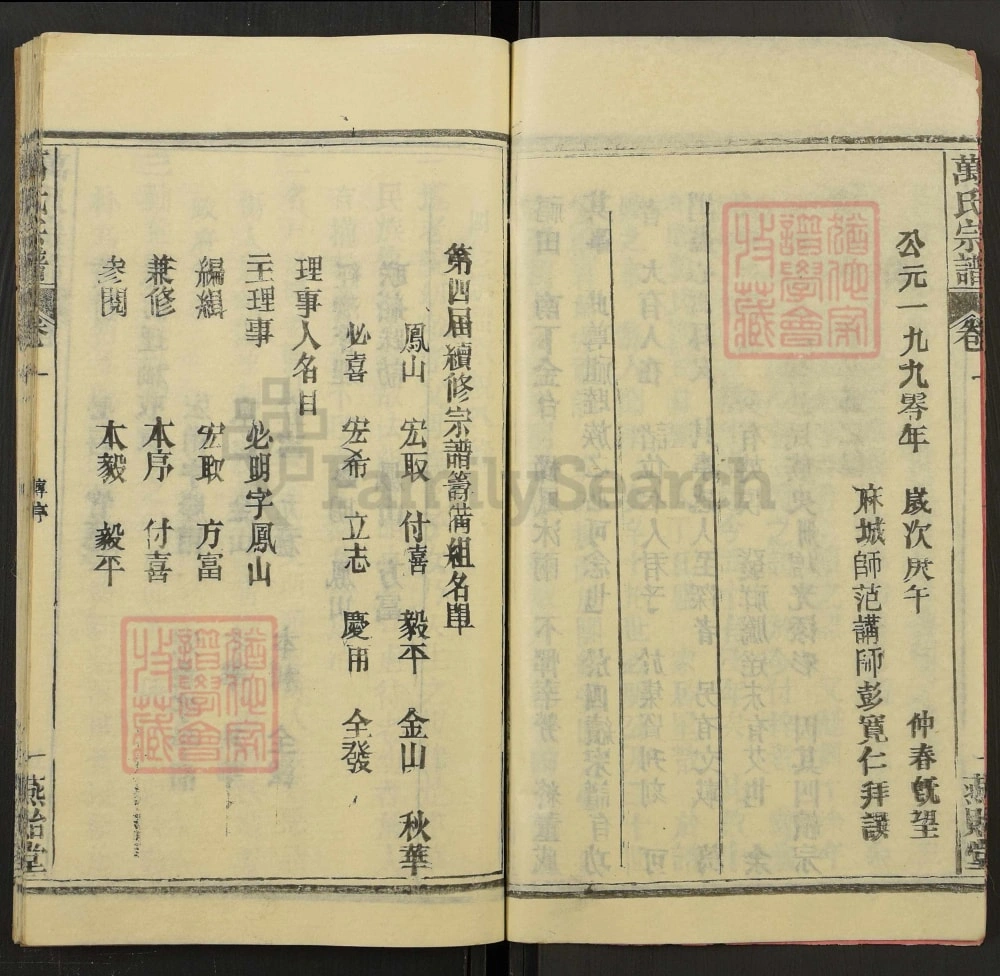 萬氏宗譜
卷一
燕貽堂
公元一九九零年 歲次庚午 仲春既望
麻城師范講師彭寬仁拜譔
猶他家譜學會收藏
第四届續修宗譜籌備組名單
鳳山 宏取 付喜 毅平 金山 秋華
必喜 宏希 立志 慶甫 全發
理事人名目
主理事 必明字鳳山
編緝 宏取 方富
兼修 本序 付喜
參閱 本毅 毅平
猶他家譜學會收藏
萬氏宗譜
卷一
燕貽堂
FamilySearch